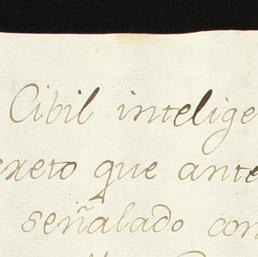 Cibil intelige
exeto que ante
señalado con